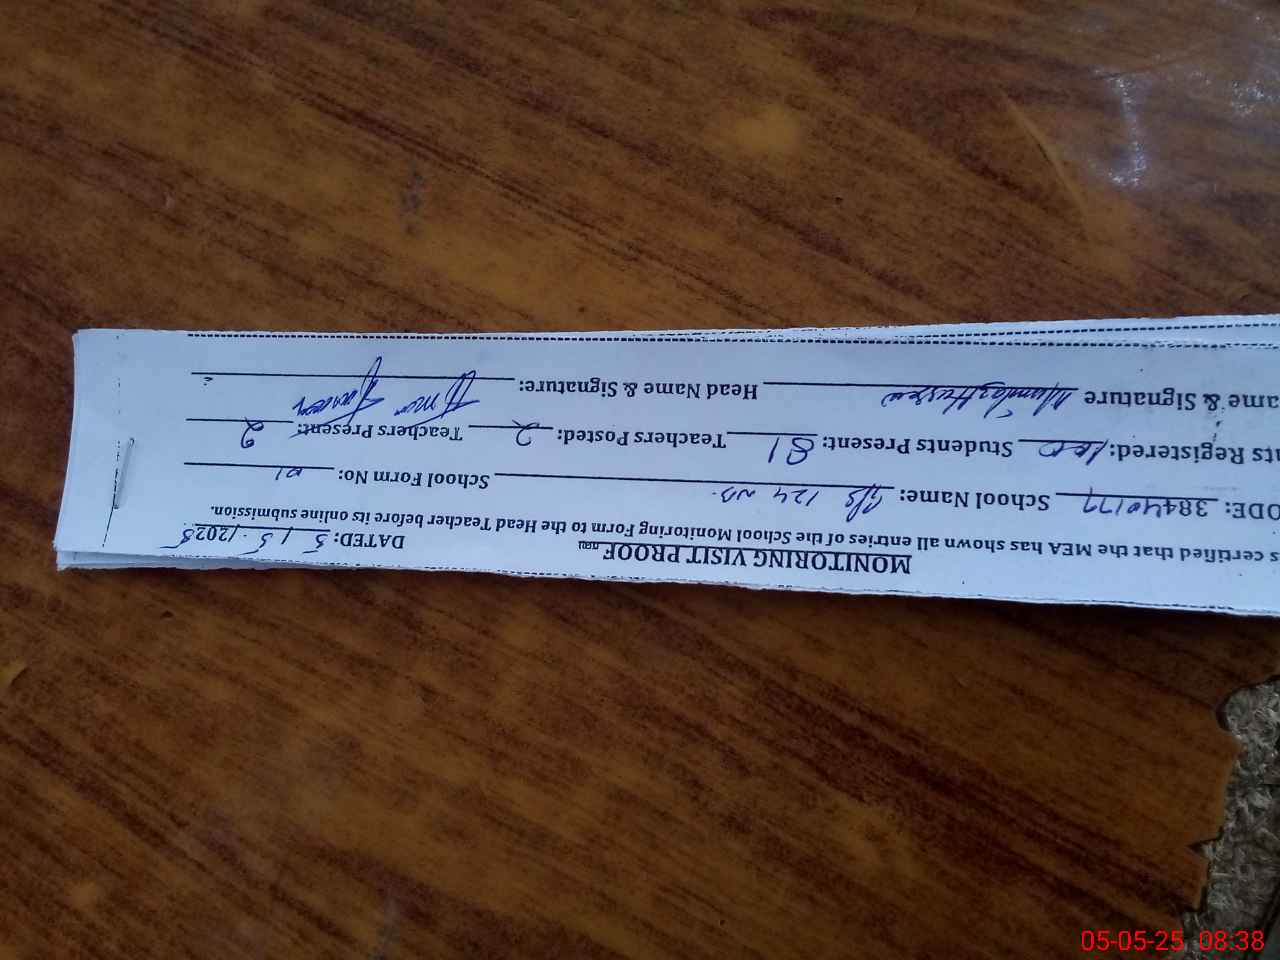 MONITORING VISIT PROOF
DATED: 5 / 5 /2025
s certified that the MEA has shown all entries of the School Monitoring Form to the Head Teacher before its online submission.
ODE: 38440177 School Name: GPS 124 NB. School Form No: 01
ts Registered: 100 Students Present: 81 Teachers Posted: 2 Teachers Present: 2
ame & Signature Mumtaz Hussain Head Name & Signature:
05-05-25 08:38